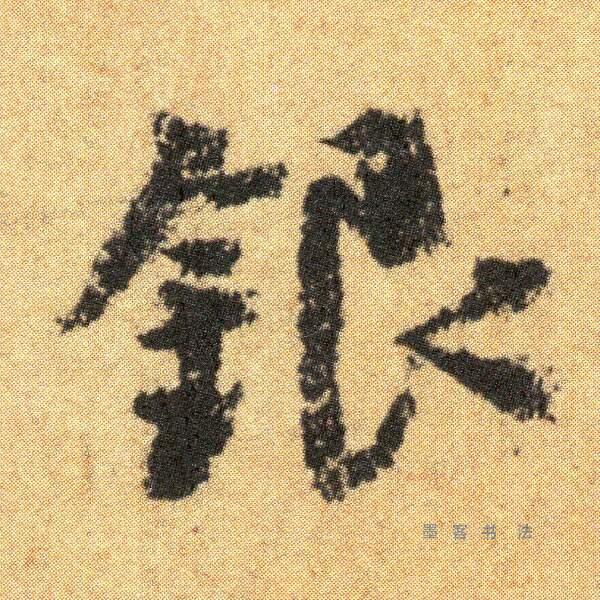 銀
墨客书法